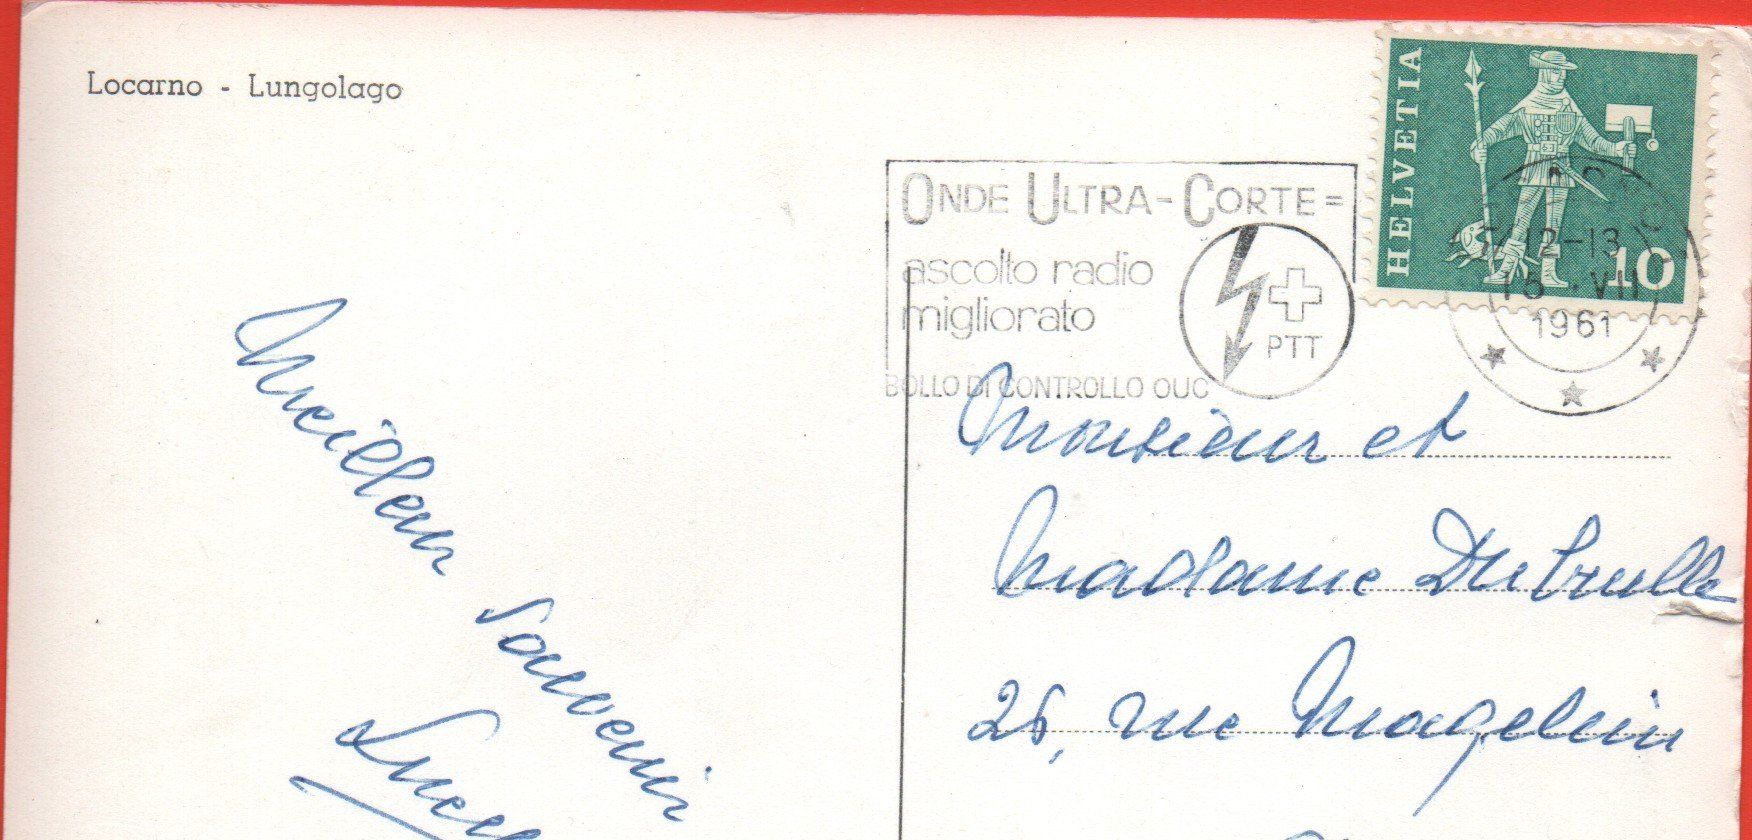 Locarno - Lungolago
HELVETIA
10
ONDE ULTRA-CORTE=
ascolto radio
migliorato
PTT
BOLLO DI CONTROLLO OUC
12-13
VII
1961
Meilleur
Souvenir
Monsieur et
Madame
26, rue